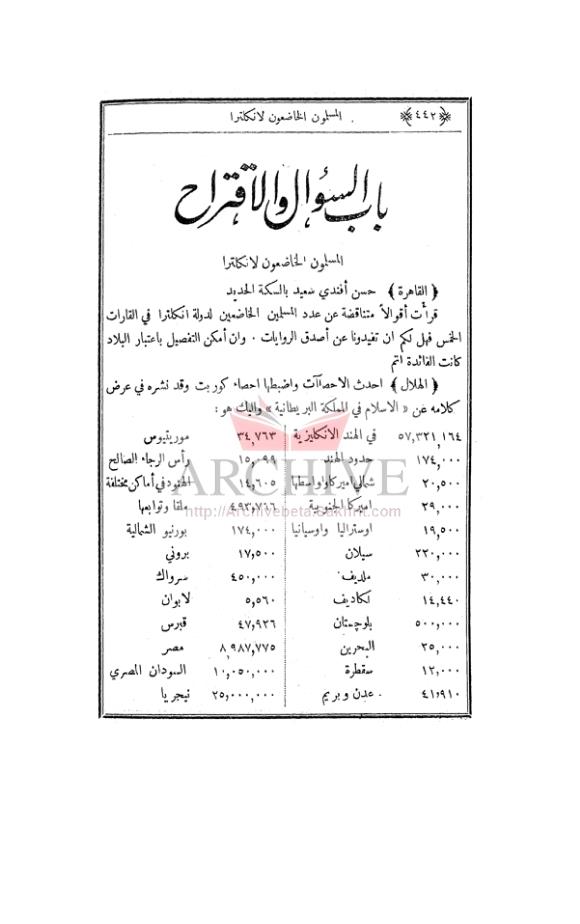 ﴿٤٤٢﴾ المسلمون الخاضعون لانكلترا
باب السؤال والاقتراح
المسلمون الخاضعون لانكلترا
﴿ القاهرة ﴾ حسن أفندي سعيد بالسكة الحديد
قرأت أقوالاً متناقضة عن عدد المسلمين الخاضعين لدولة انكلترا في القارات
الخمس فهل لكم ان تفيدونا عن أصدق الروايات . وان أمكن التفصيل باعتبار البلاد
كانت الفائدة اتم
﴿ الهلال ﴾ احدث الاحصاآت واضبطها احصاء كوربت وقد نشره في عرض
كلامه عن « الاسلام في المملكة البريطانية » واليك هو :
٥٧,٣٢١,١٦٤ في الهند الانكليزية
١٧٤,٠٠٠ حدود الهند
٢٠,٥٠٠ شمالي اميركا واواسطها
٢٩,٠٠٠ اميركا الجنوبية
١٩,٥٠٠ اوستراليا واوسيانيا
٢٢٠,٠٠٠ سيلان
٣٠,٠٠٠ ملديف
١٤,٤٤٠ لكاديف
٥٠٠,٠٠٠ بلوچستان
٢٥,٠٠٠ البحرين
١٢,٠٠٠ سقطرة
٤١,٩١٠ عدن وبريم
٣٤,٧٦٣ موريتيوس
١٥,٠٩٩ رأس الرجاء الصالح
١٤,٦٠٥ الهنود في أماكن مختلفة
٤٩٣,٧١٦ ملقا وتوابعها
١٧٤,٠٠٠ بورنيو الشمالية
١٧,٥٠٠ بروني
٤٥٠,٠٠٠ سرواك
٥,٥٦٠ لابوان
٤٧,٩٢٦ قبرس
٨,٩٨٧,٧٧٥ مصر
١٠,٠٥٠,٠٠٠ السودان المصري
٢٥,٠٠٠,٠٠٠ نيجريا
ARCHIVE
http://Archivebeta.Sakhrit.com